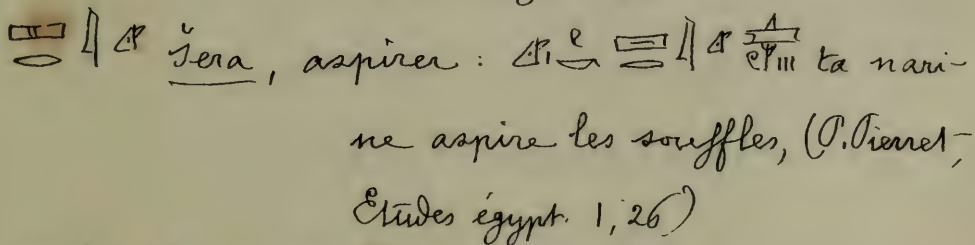 šera, aspirer : ta nari-
ne aspire les souffles, (P. Pierret,
Etudes égypt. 1, 26)